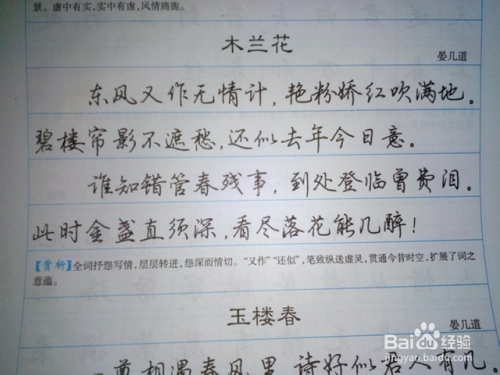 景。虚中有实,实中有虚,风情旖旎。
木兰花
晏几道
东风又作无情计,艳粉娇红吹满地。
碧楼帘影不遮愁,还似去年今日意。
谁知错管春残事,到处登临曾费泪。
此时金盏直须深,看尽落花能几醉!
【赏析】全词抒怨写情,层层转进,怨深而情切。“又作”“还似”,笔致纵送虚灵,贯通今昔时空,扩展了词之
意蕴。
玉楼春
晏几道
一尊相遇春风里,诗好似君人有几。
Baidu经验
jingyan.baidu.com